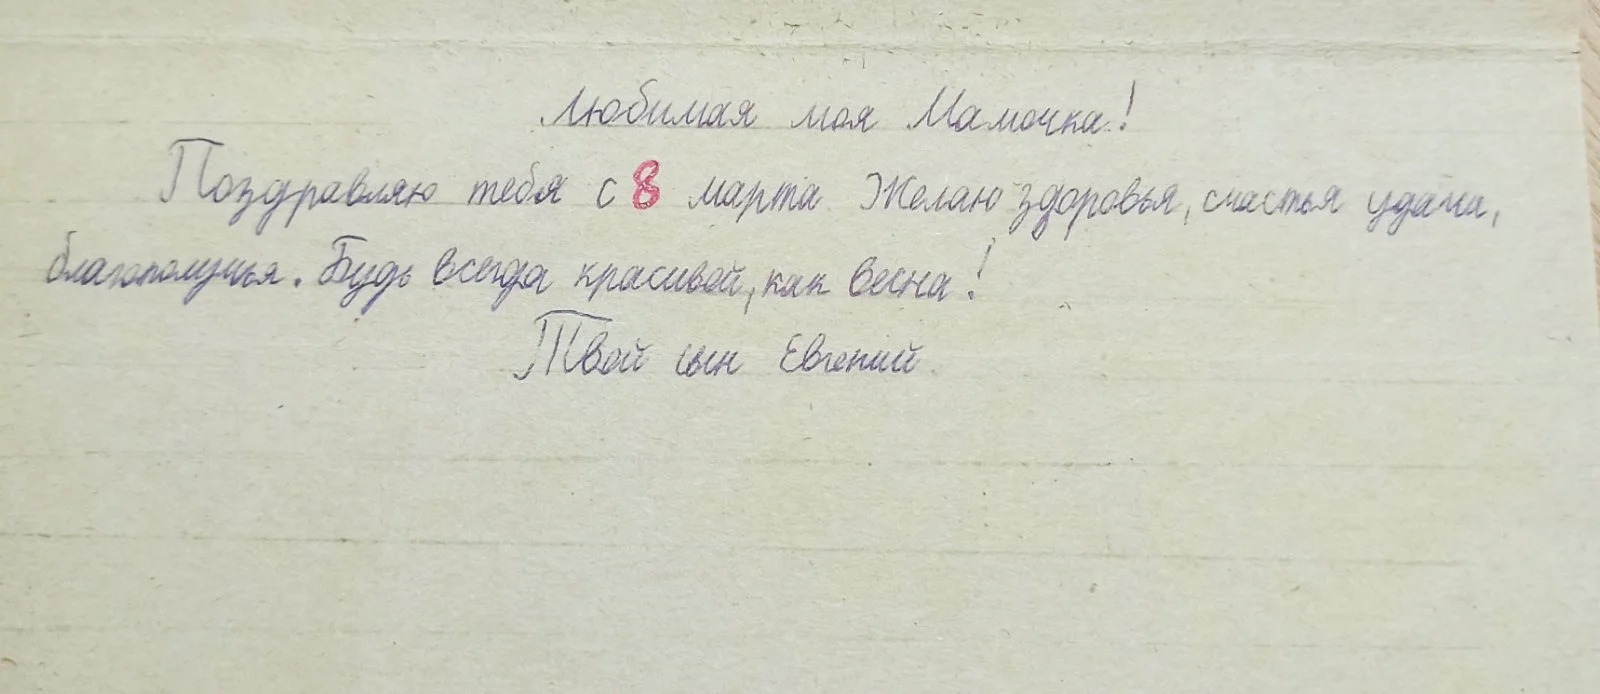 Любимая моя Мамочка!
Поздравляю тебя с 8 марта. Желаю здоровья, счастья удачи,
благополучья. Будь всегда красивой, как весна!
Твой сын Евгений